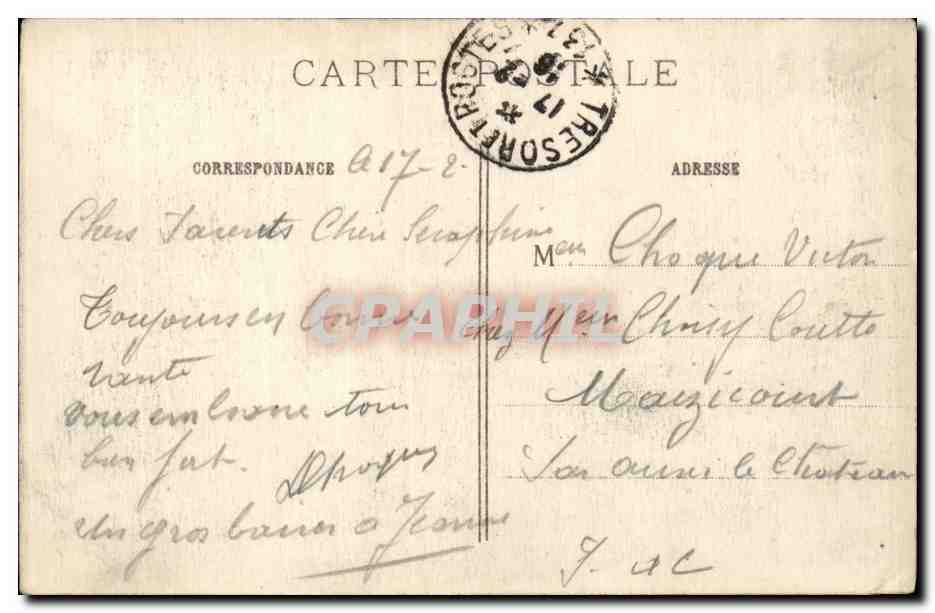 CARTE POSTALE
TRESOR ET POSTES
* 131 *
17
CORRESPONDANCE
17-2-
ADRESSE
Chers Parents Chere Seraphine
Toujours en bonne
sante
vous embrasse tous
bien fort.
Choque
un gros baiser a Jeanne
Meur Choque Victor
chez Meur Choisy
Maizicourt
Par auxi le Chateau
P. de C
CPAPHIL